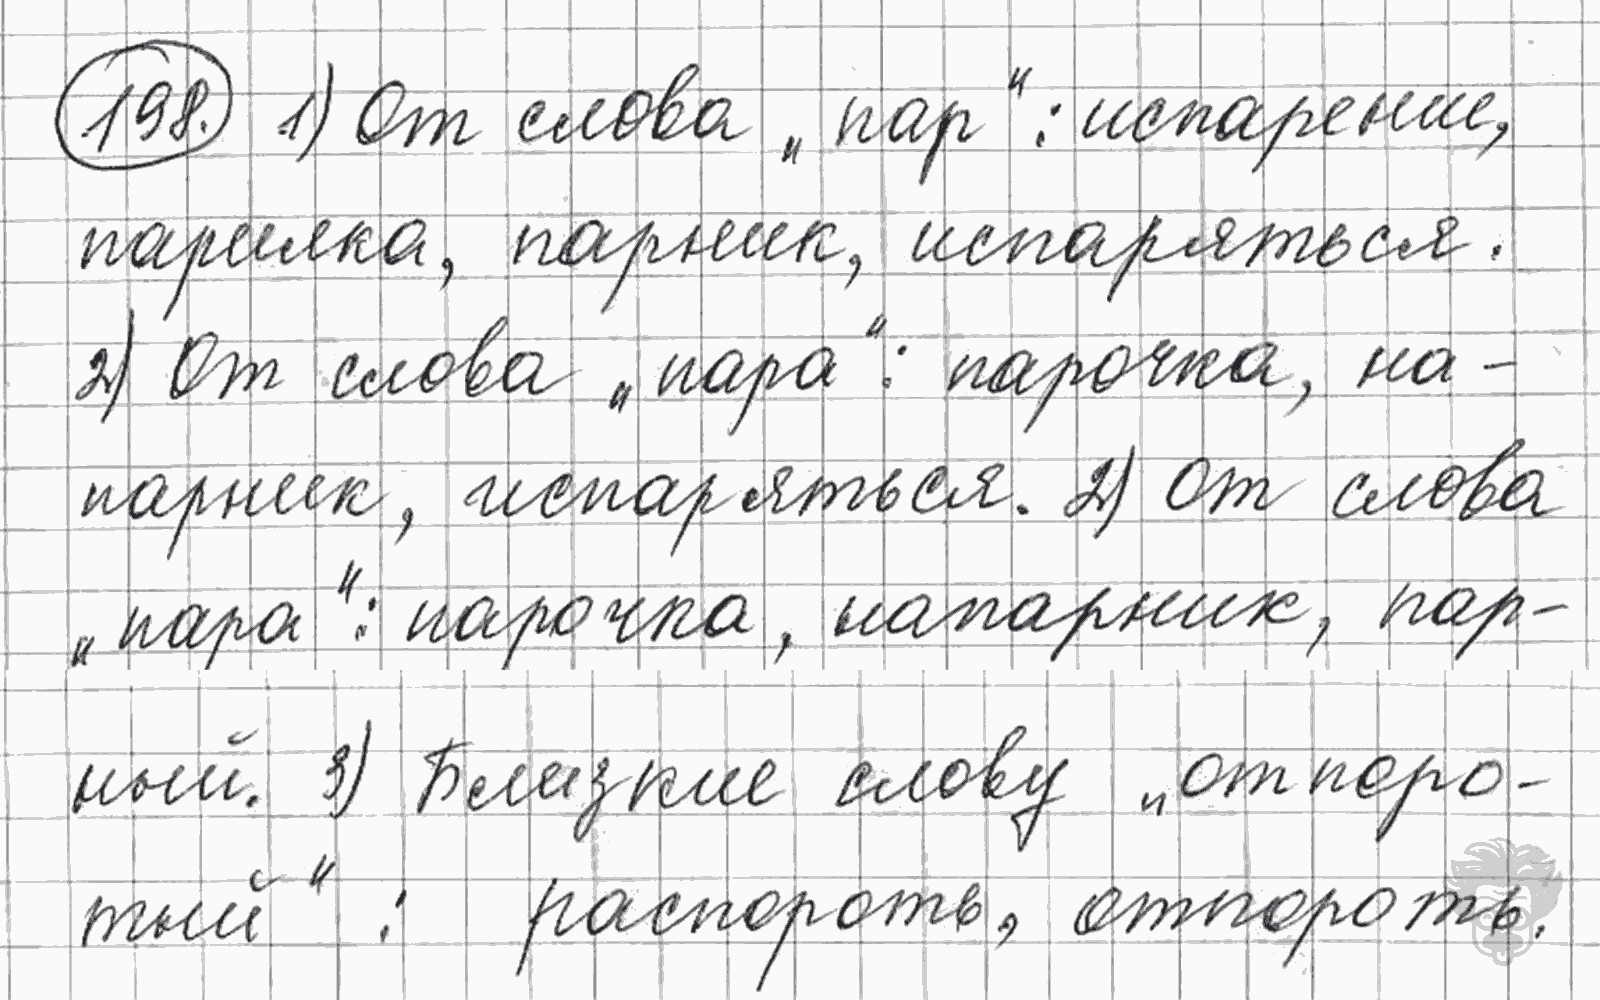 198. 1) От слова „пар": испарение,
парилка, парник, испаряться.
2) От слова „пара": парочка, на-
парник, испаряться. 2) От слова
„пара": парочка, напарник, пар-
ный. 3) Близкие слову „отпоро-
тый": распороть, отпороть.